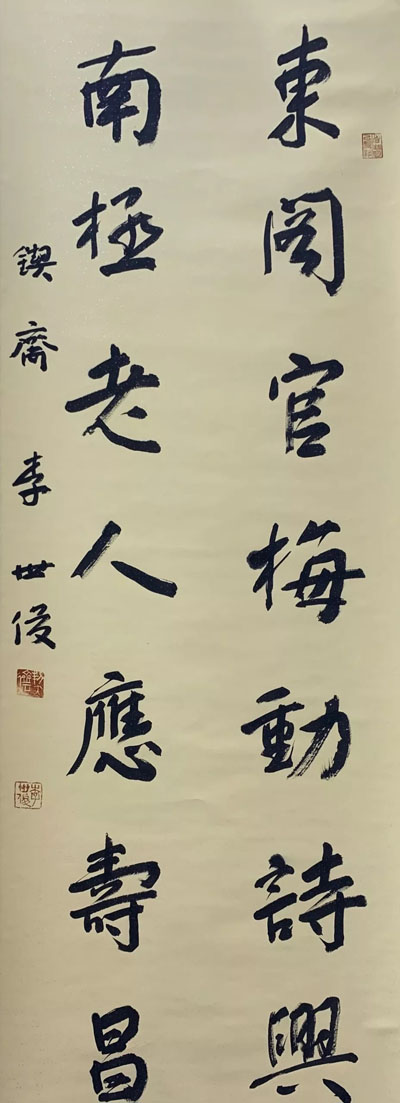 東閣官梅動詩興
南極老人應壽昌
鍥齋 李世俊
李世俊